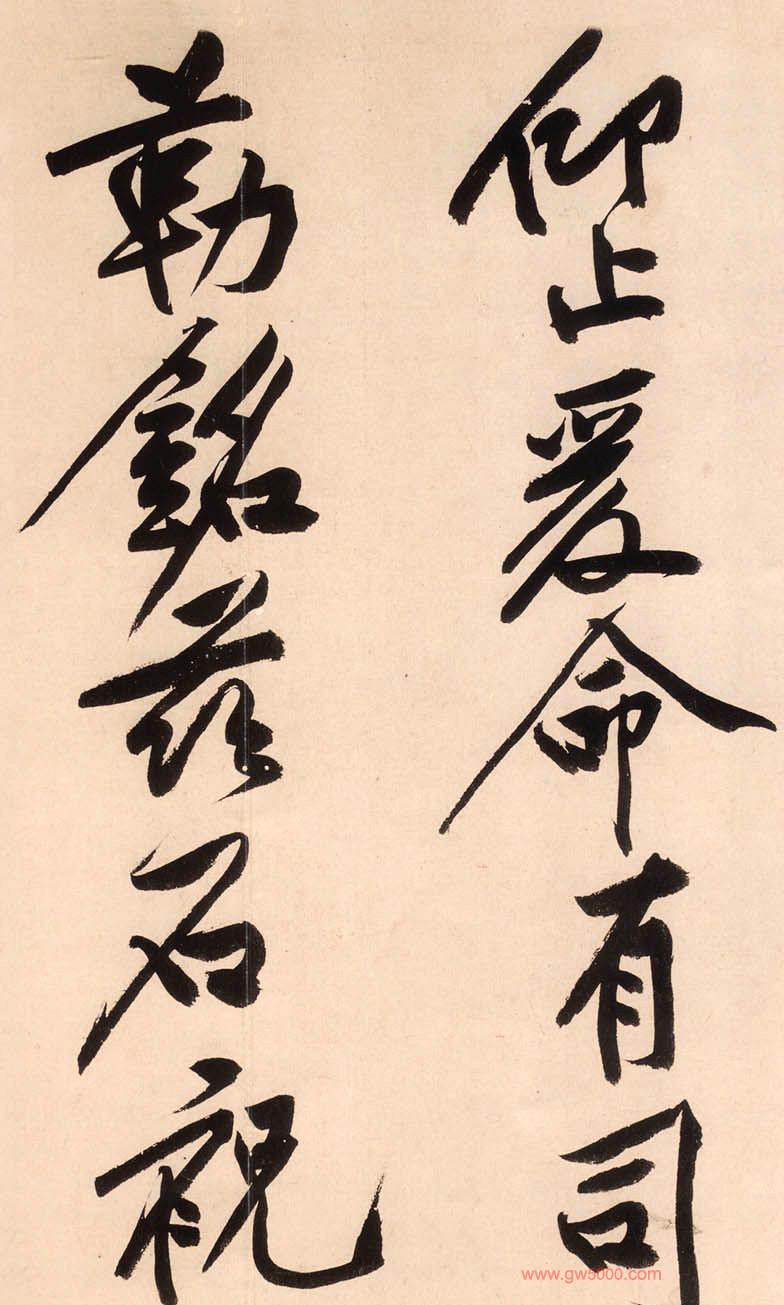 仰止爰命有司
勒銘茲石祝
www.gw5000.com